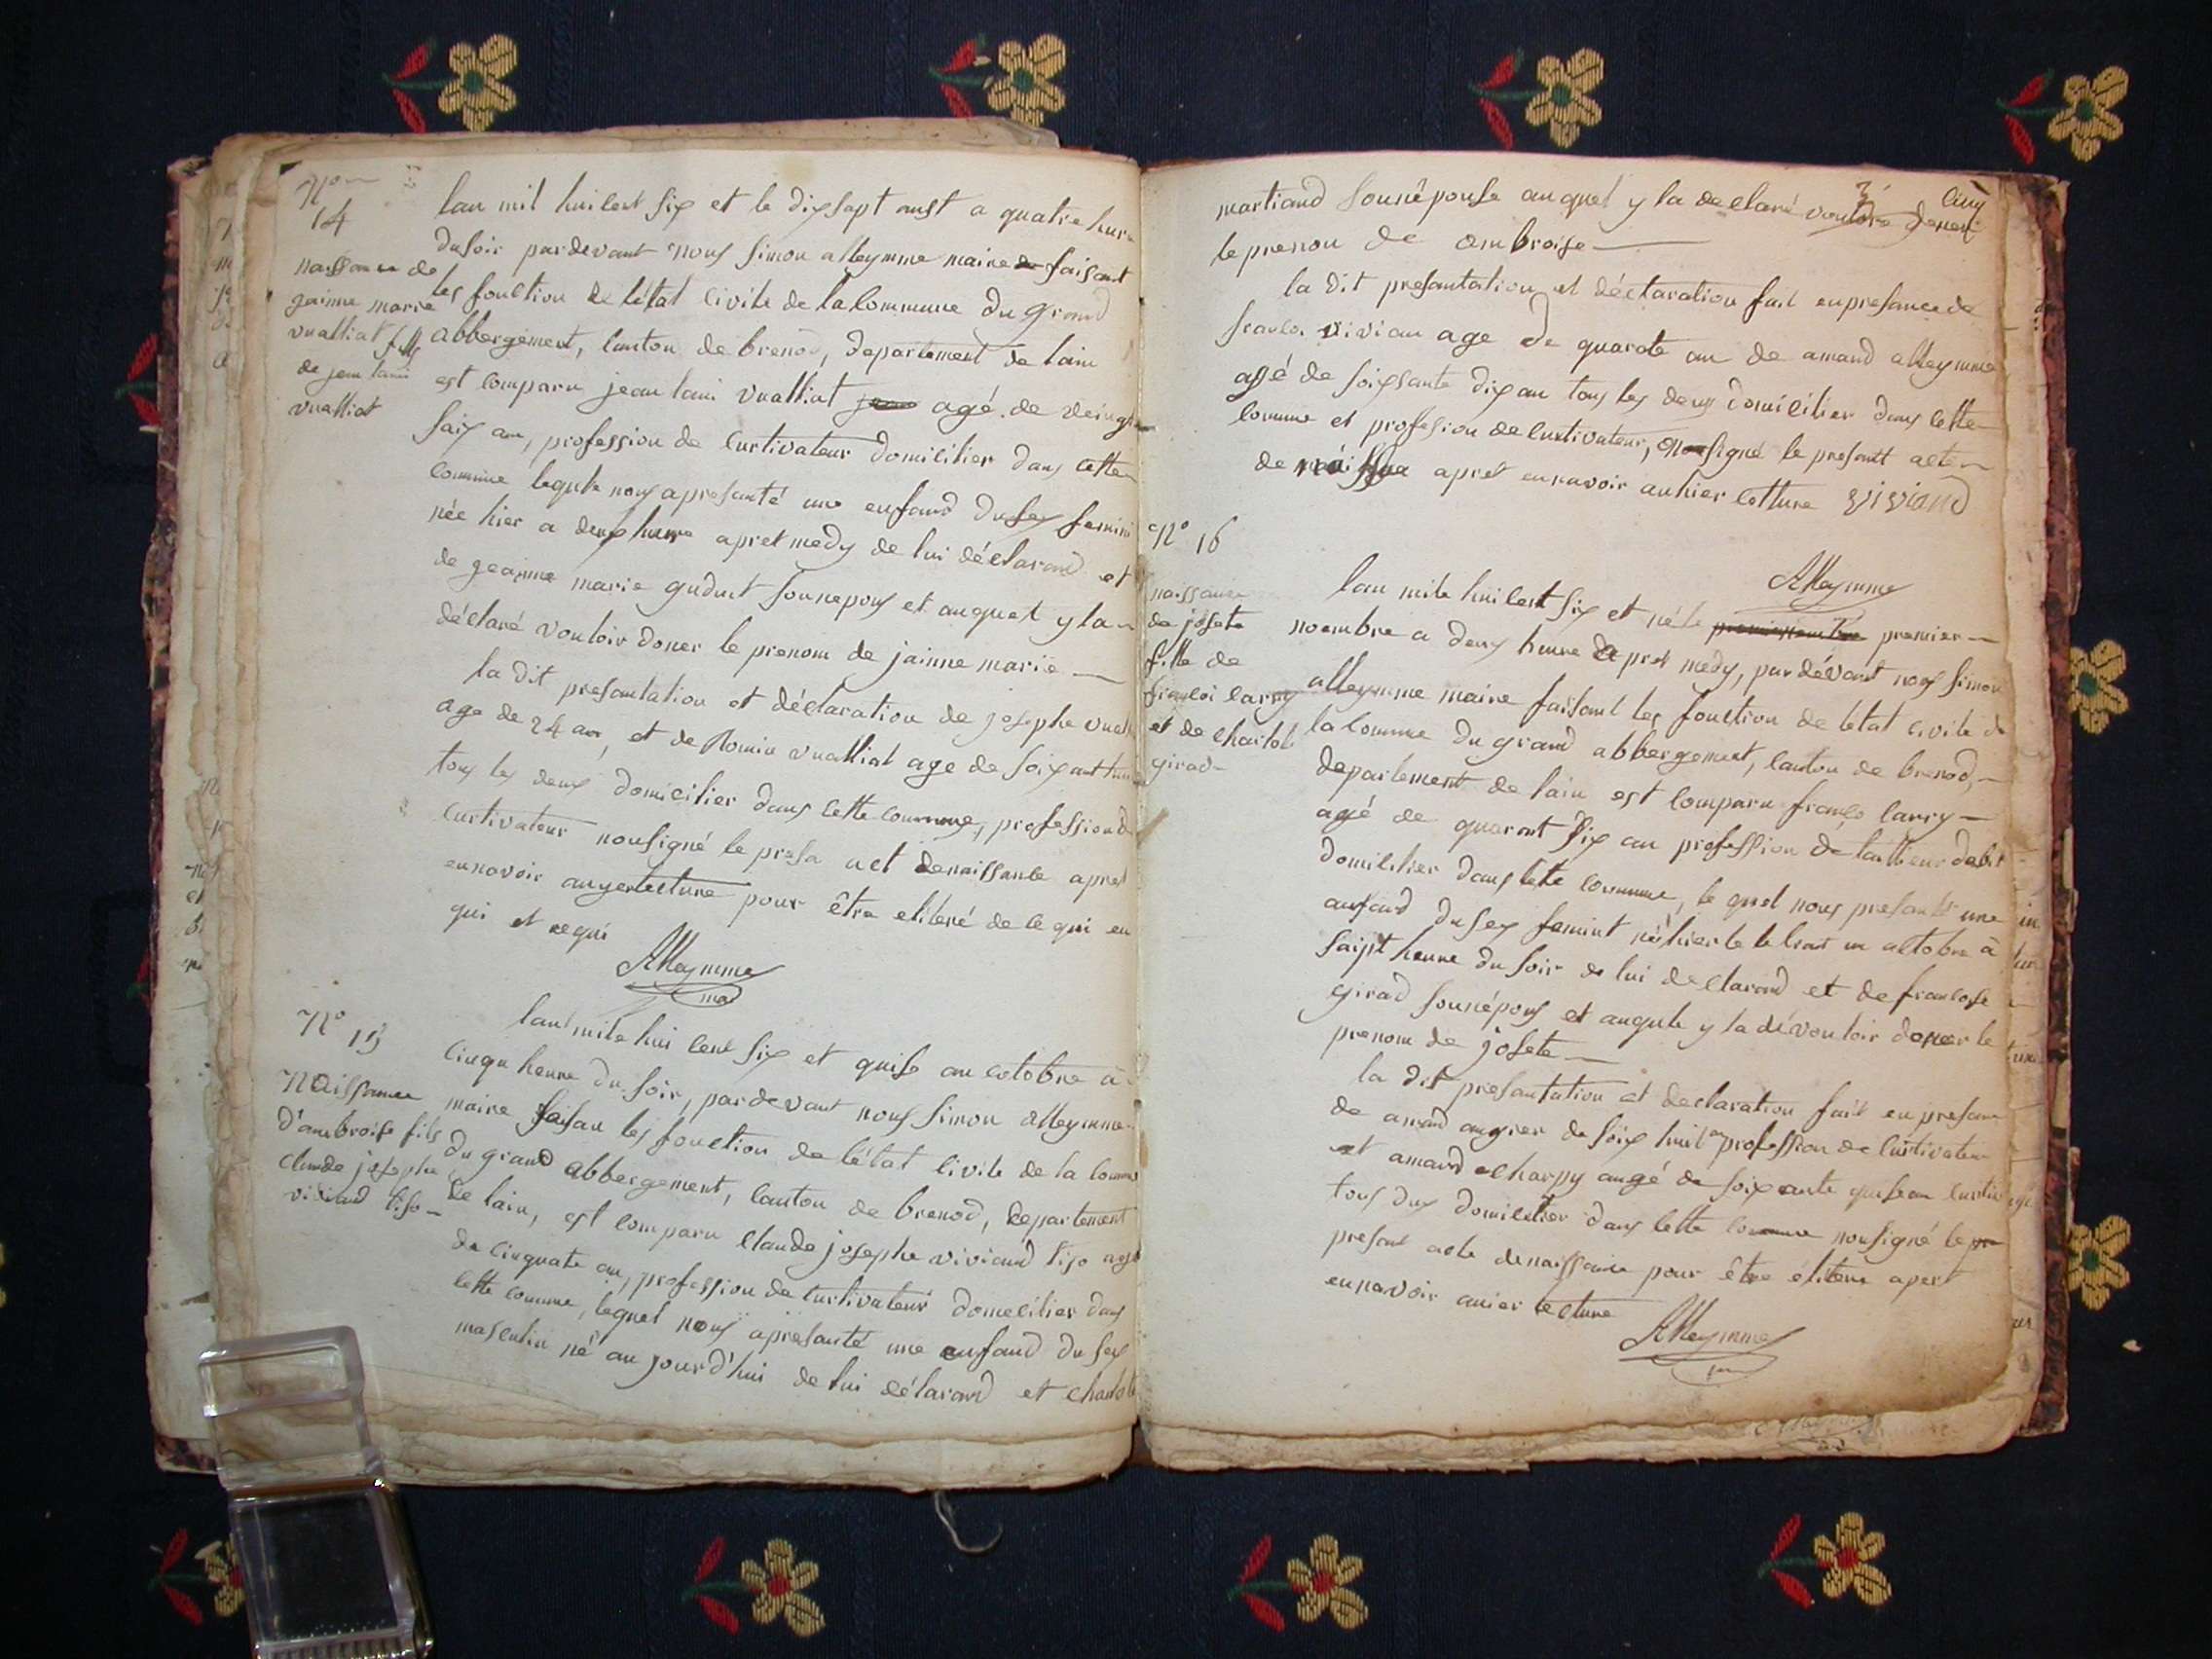 N°
14
naissance de
jainne marie
vualliat fille
de jean louis
vualliat
lan mil huilcent six et le dixsapt aust a quatre hure
dusoir pardevant nous simon alleymme maire faisant
les fonction de létat civile de la commune du grand
abbergement, canton de brenod, departement de lain
est comparu jean loui vualliat agé de veingt
saix an, profession de curtivateur domicilier dans cette
commune lequle nous apresanté une enfand du sex feminin
née hier a deux hurre apret medy de lui déclarand et
de jeainne marie guduct sonnepous et auquel y la
déclaré vouloir doner le prenom de jainne marië
la dit presantation et déclaration de josephe vuall
age de 24 an, et de Romin vualliat age de soixant
tous les deux domicilier dans cette commune, profession de
curtivateur nousigné le presa act denaissance apret
ennavoir anyer lecture pour être eliteré de ce qui en
qui et requi
Alleymme
mar
N° 15
Naissance
d'ambroise fils
claude josephe
viviand tiso
lant mile hui cent six et quise an octobre à
cinqu heure du soir, pardevant nous simon alleymme
maire faisan les fonction de létat civile de la comme
du grand abbergement, canton de brenod, departement
de lain, est comparu claude josephe viviand tiso agé
de cinquate an, profession de curtivateur domecilier dans
cette comme, lequel nous apresanté une enfand du sex
masculin né aujourd'hui de lui délarand et charlote
3 cinq
martiand sonnépouse auquel y la declaré voulore doner
le prenon de ambroise
la dit presantation et déclaration fait enpresance de
francoi vivian age de quarate an de amand alleymme
agé de soixsante dix an tous les deux domicilier dans cette
comme et profesion de curtivateur, onsigné le presantt acte
de naissa apret ennavoir anhier letture viviand
Alleymme
N° 16
naissance
de josete
fille de
francoi carry
et de charlot
girad
lan mile huilcent six et né le premier
noembre a deux heure apret medy, pardévant nous simon
alleymme maire faisant les fonction de letat civile de
la comme du grand abbergement, canton de brenod,
departement de lain est comparu franco carry
agé de quarant six an profession de taillieur dabit
domicilier dans cete commune, le quel nous presante une
anfand du sex femint né hier le trant un octobre à
saipt heure du soir de lui declarand et de francoise
girad sonnépous et auqule y la dévouloir doner le
prenom de josete
la dit presantation et declaration fait en presance
de amand augier de soix huit an profession de curtivateur
et amand charpy angé de soixante quise an curtiv
tous dux domicilier dans cette commune nousigné le
presant acte denaissance pour être élitere apert
ennavoir anier lecture
Alleymme